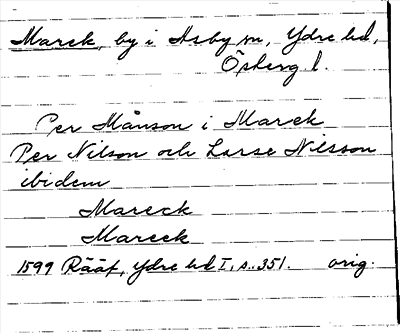 Mareck, by i Asby sn, Ydre hd,
Österg. l.
Per Månson i Mareck
Per Nilson och Larse Nilsson
ibidem
Mareck
Mareek
1599 Rääf, Ydre hd I, s. 351. orig.